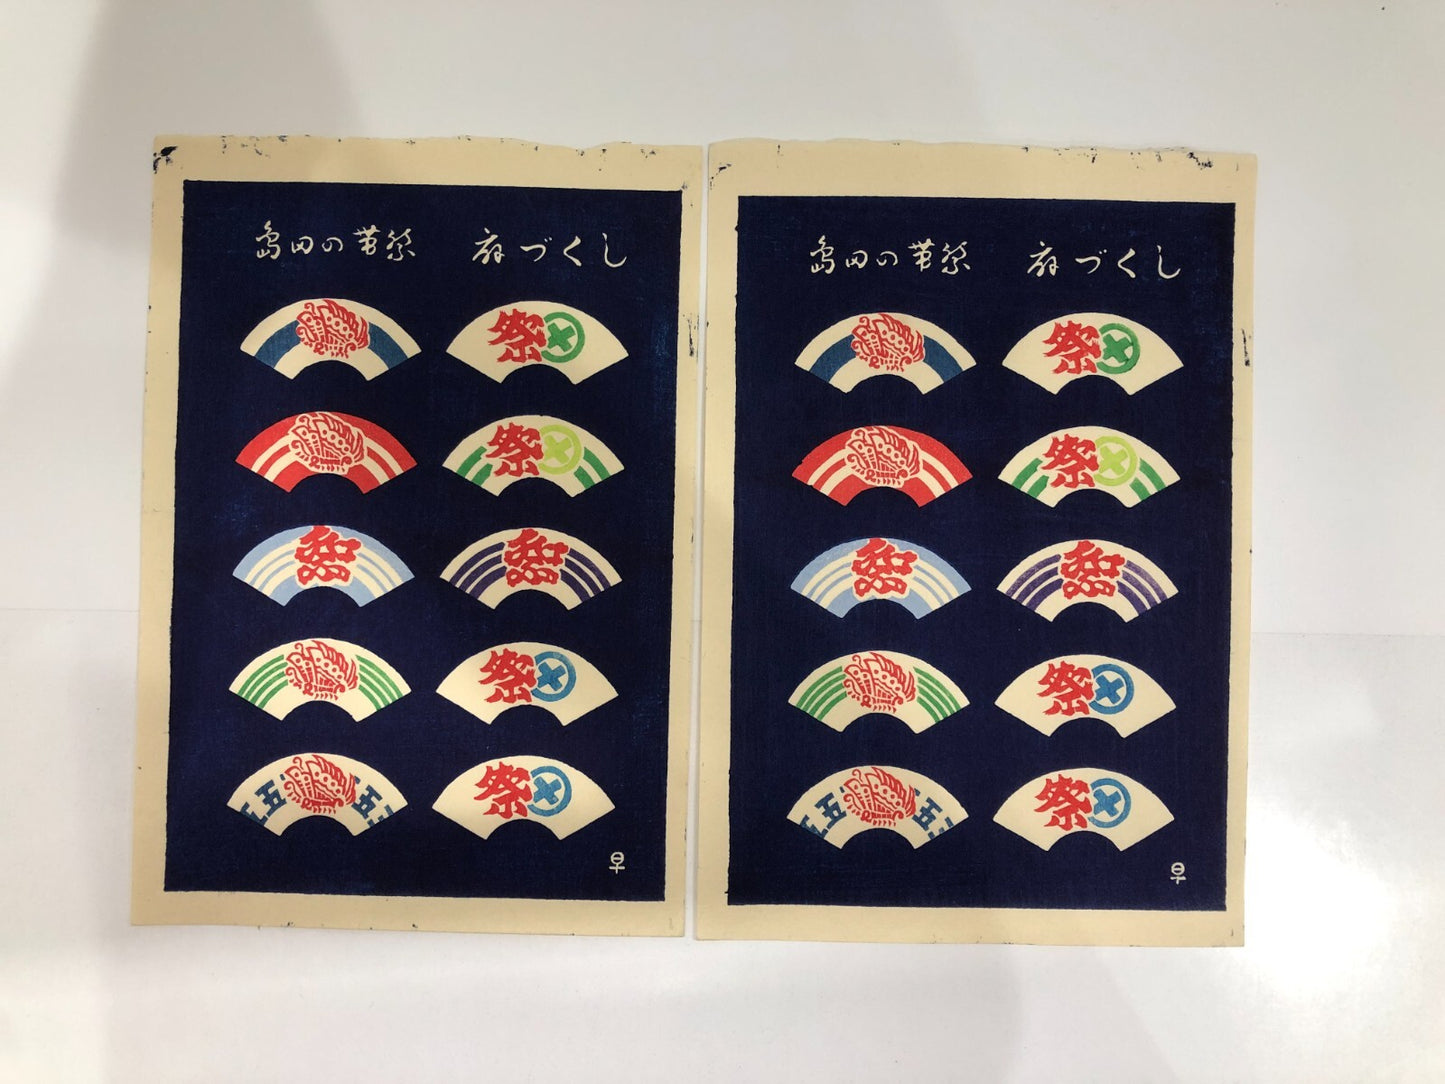 島田の帯祭 扇づくし
祭
祭
祭
祭
五 五
早
島田の帯祭 扇づくし
祭
祭
祭
祭
五 五
早